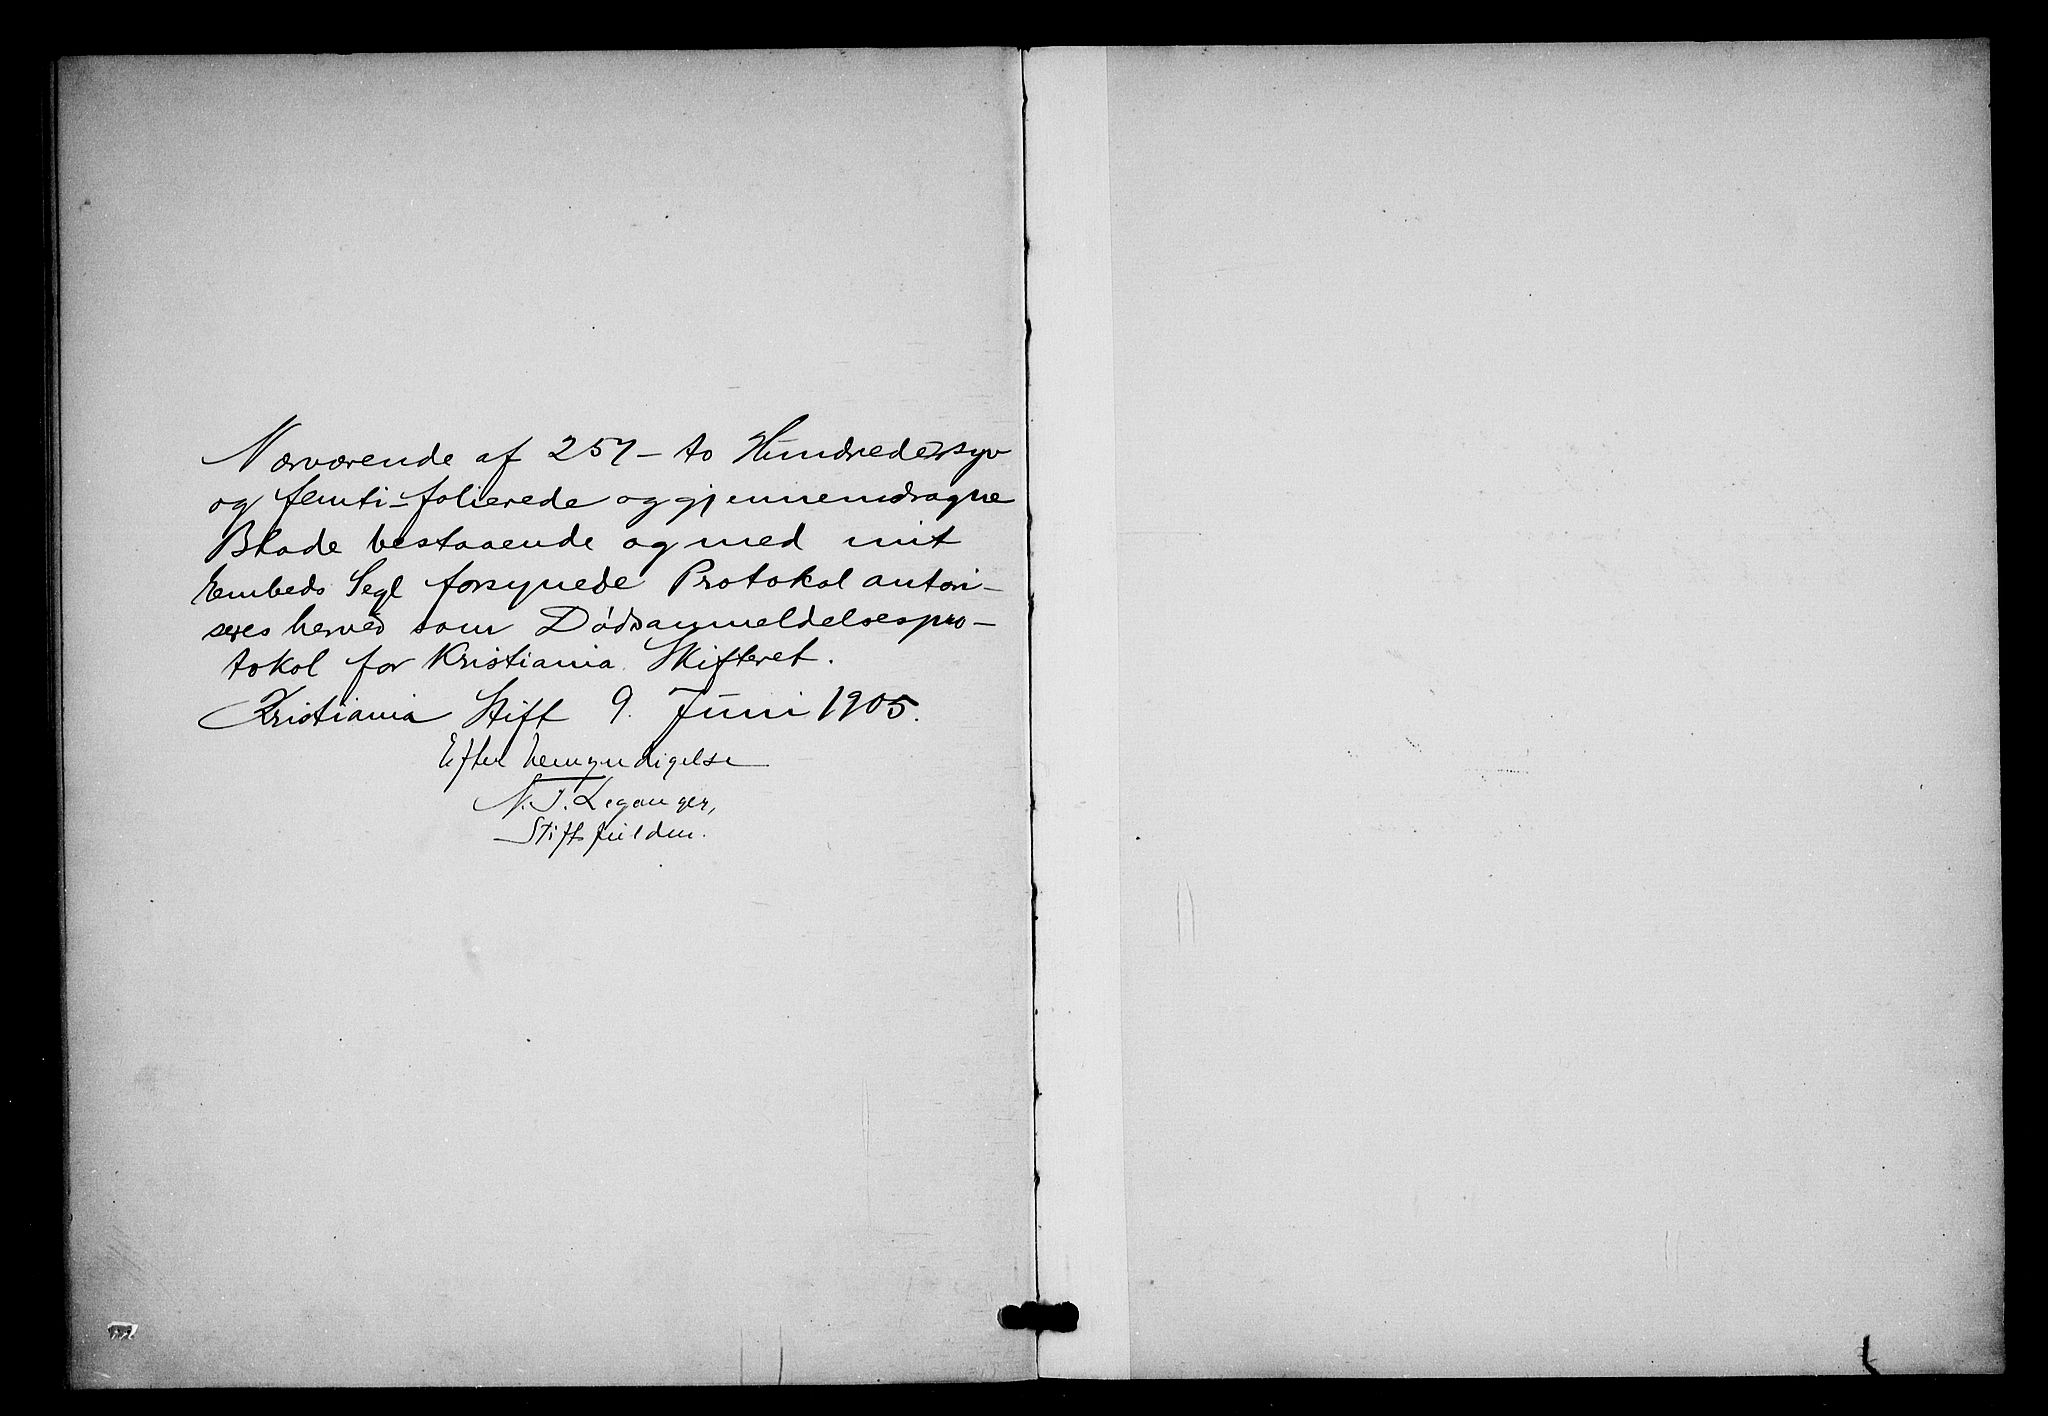 Nærværende af 257 – to Hundrede syv
og femti – folierede og gjennemdragne
Blade bestaaende og med mit
Embeds Segl forsynede Protokol autori-
seres herved som Dødsanmeldelsespro-
tokol for Kristiania Skifteret.
Kristiania Stift 9. Juni 1905.
Efter bemyndigelse
N. J. Leganger,